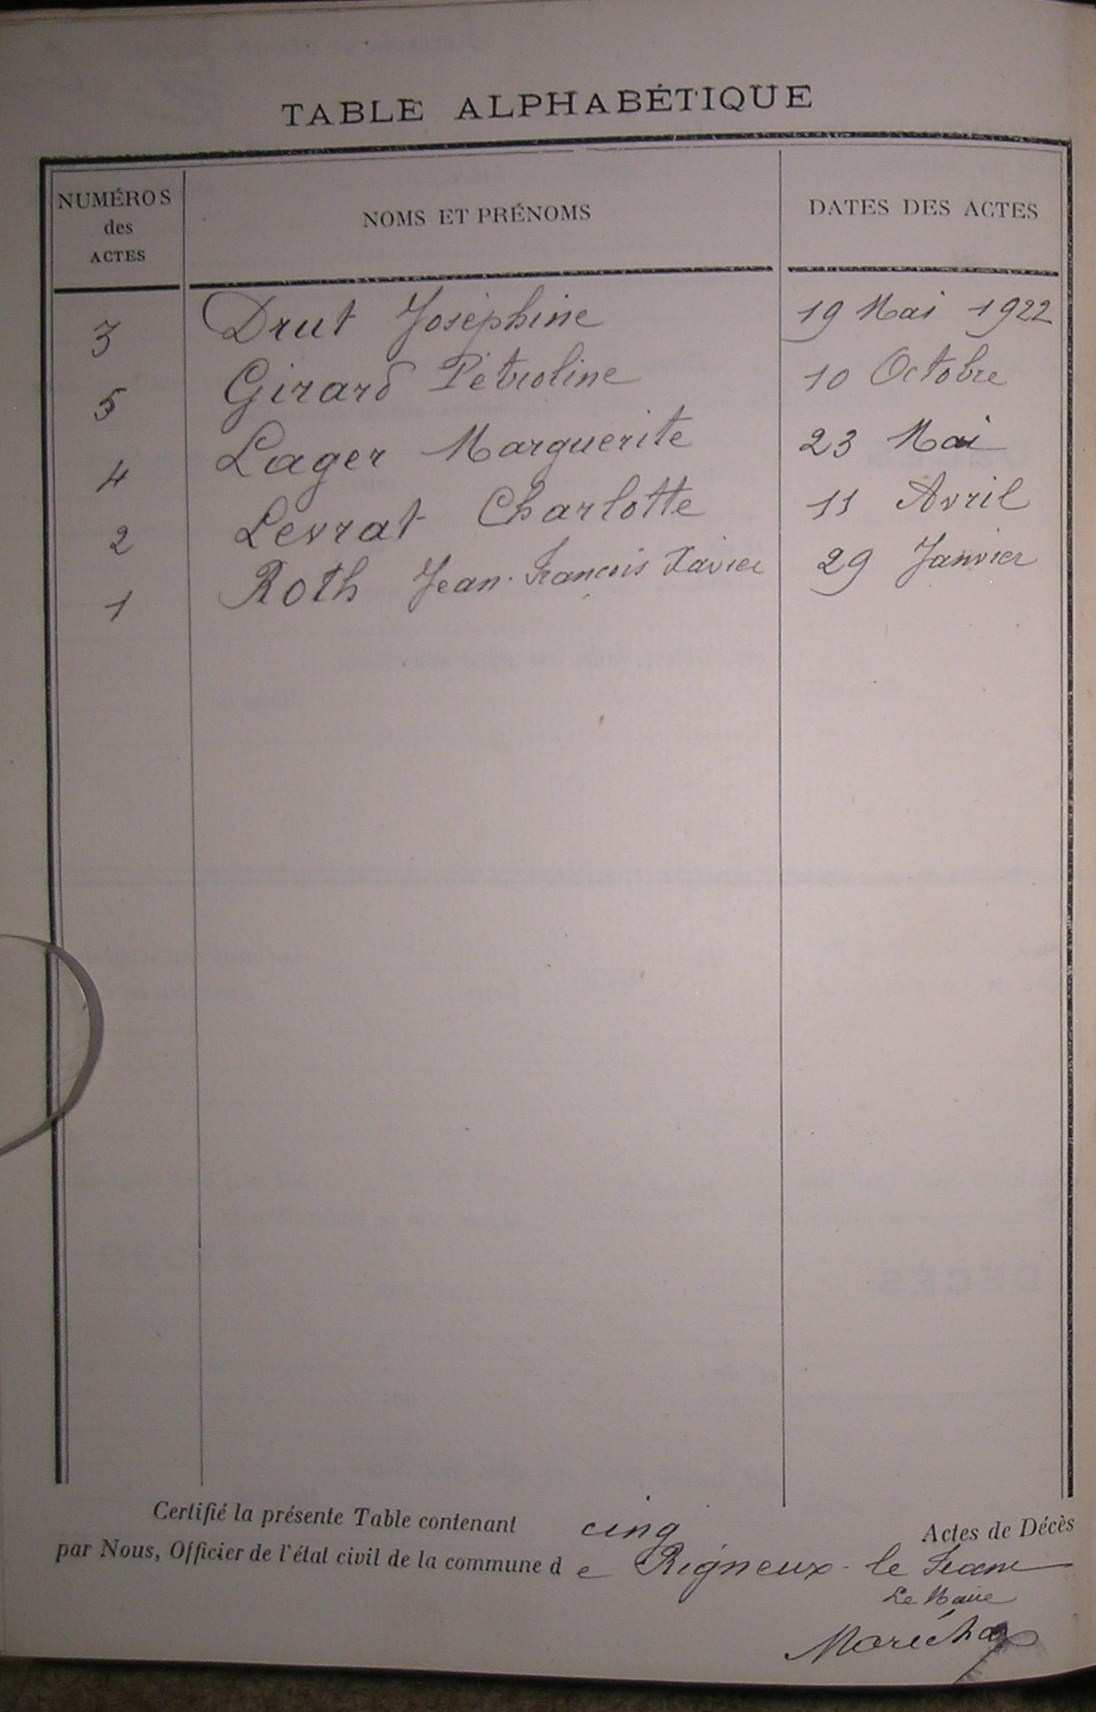 TABLE ALPHABÉTIQUE
NUMÉROS des ACTES NOMS ET PRÉNOMS DATES DES ACTES
3 Drut Joséphine 19 Mai 1922
5 Girard Pétroline 10 Octobre
4 Lager Marguerite 23 Mai
2 Levrat Charlotte 11 Avril
1 Roth Jean-François Xavier 29 Janvier
Certifié la présente Table contenant cinq Actes de Décès
par Nous, Officier de l'état civil de la commune de Rigneux-le Franc
Le Maire
Maréchal